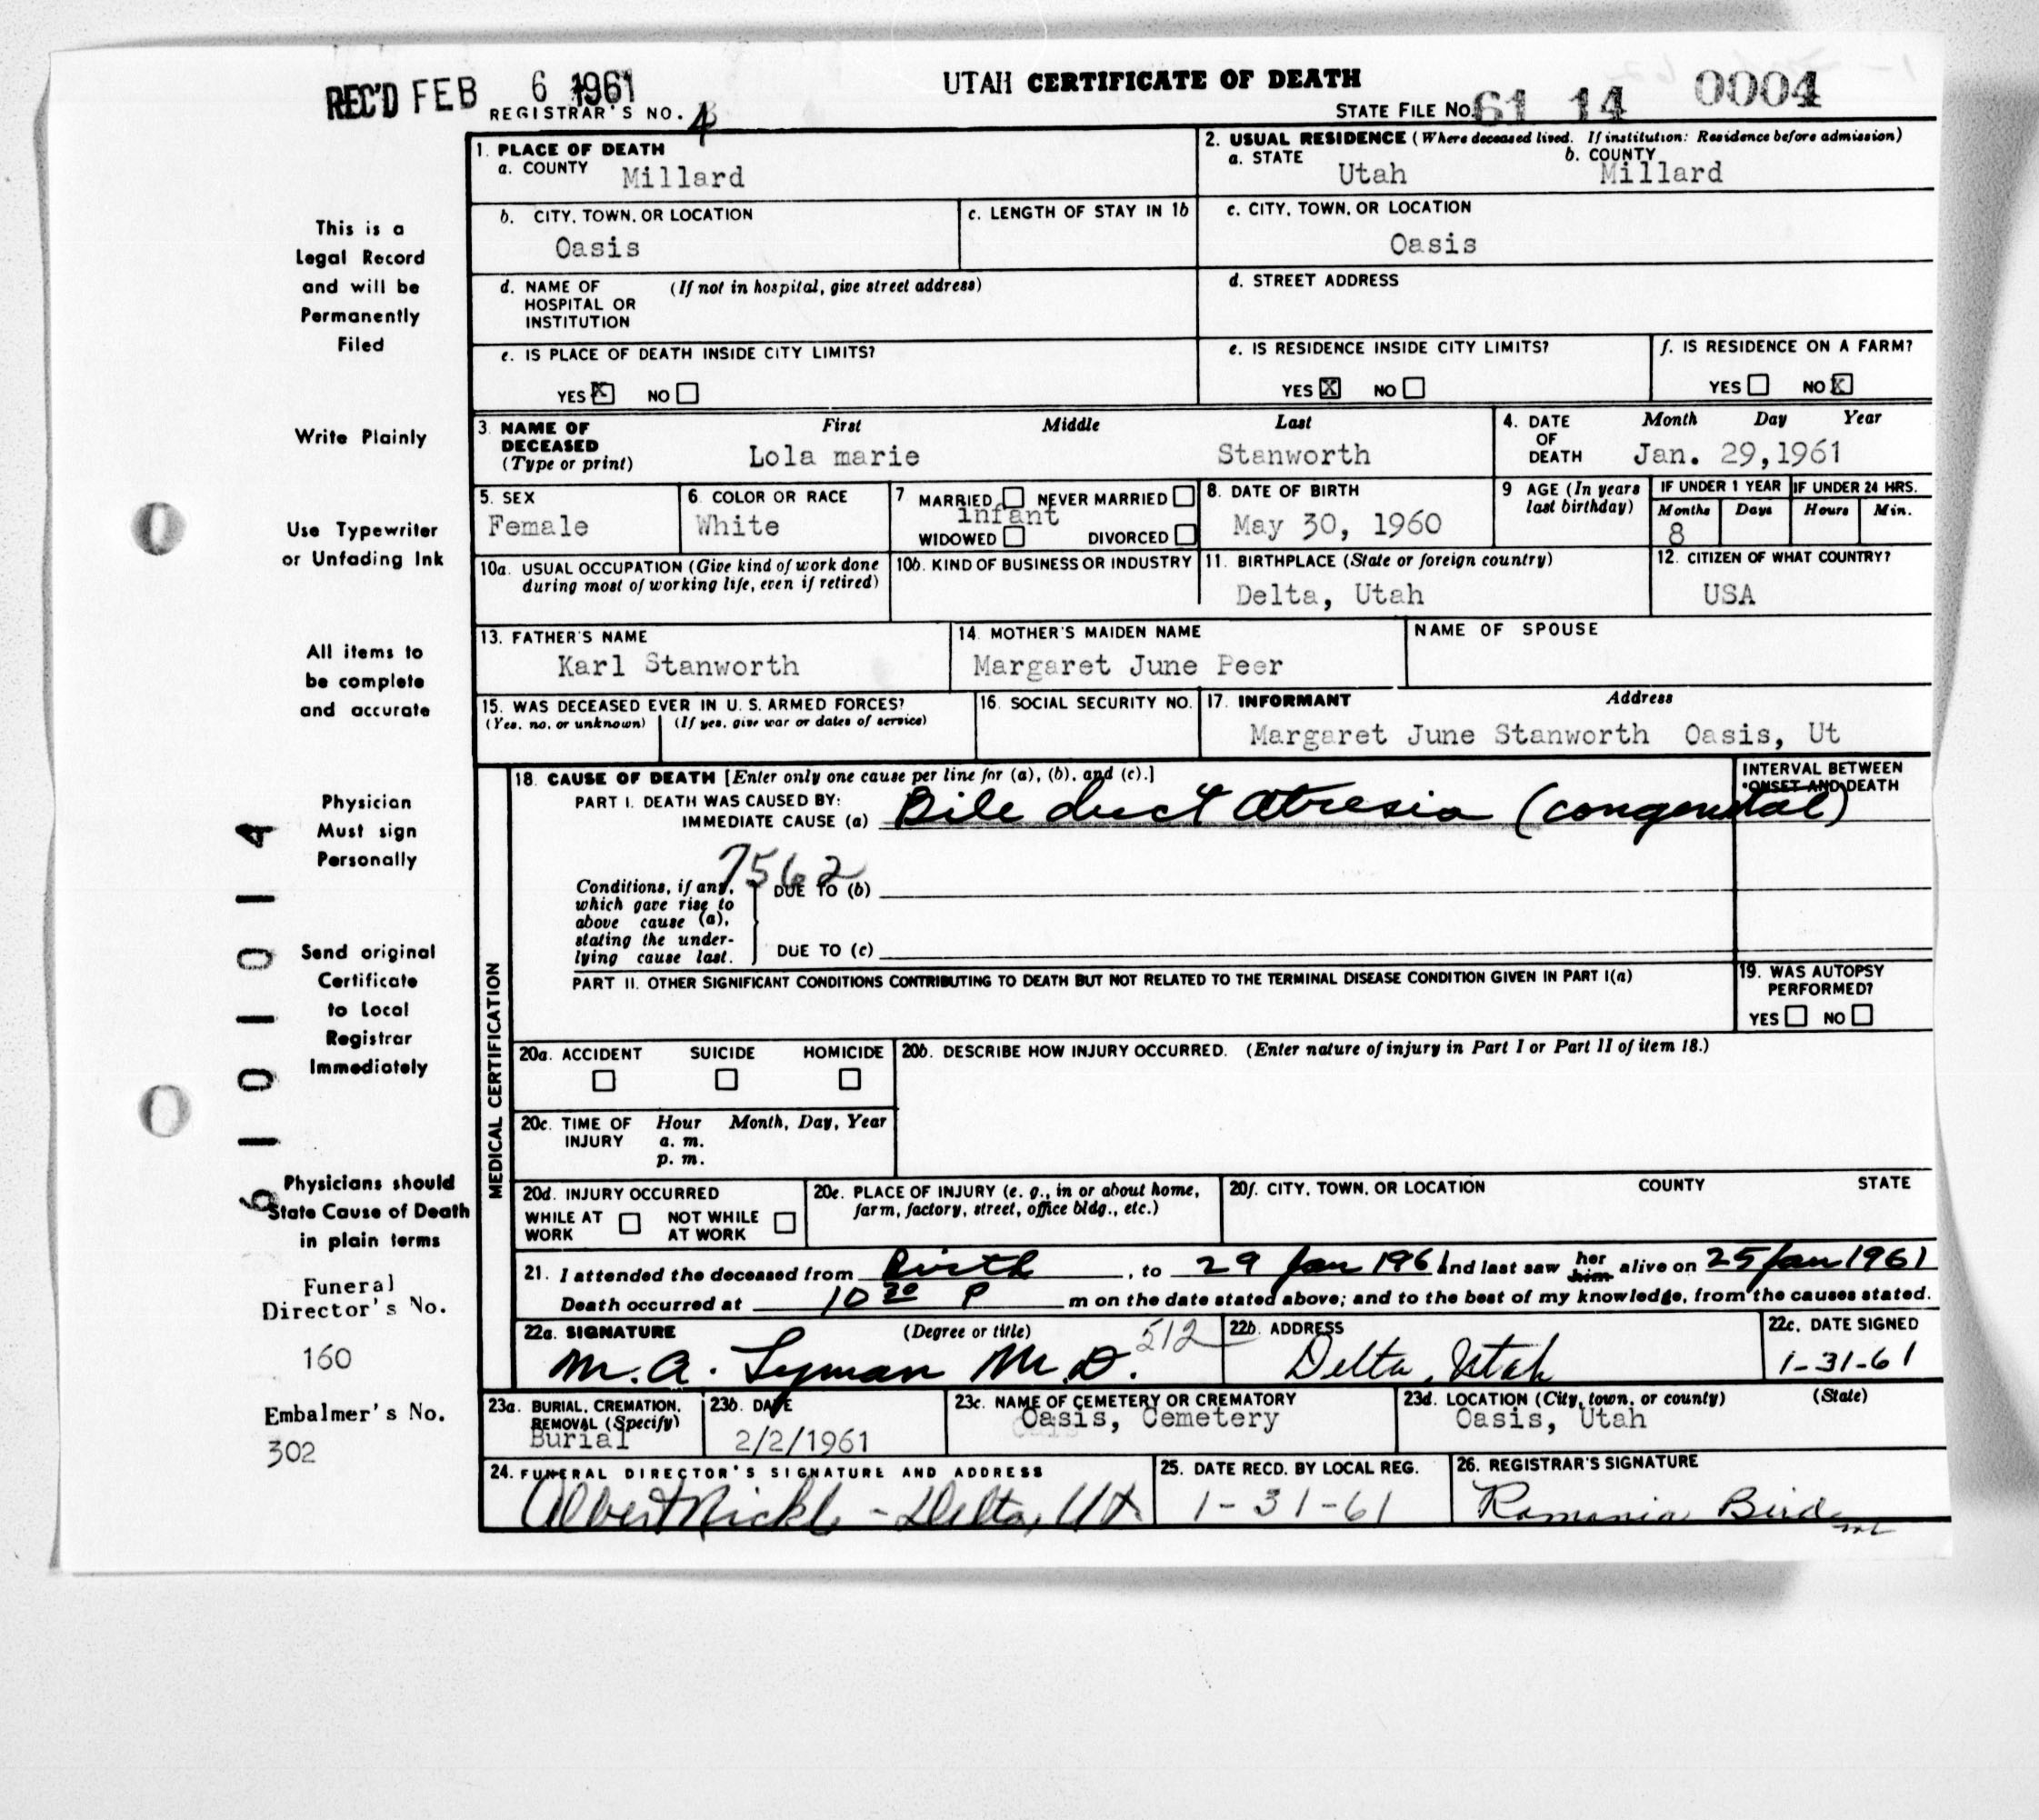 REC'D FEB 6 1961
UTAH CERTIFICATE OF DEATH
REGISTRAR'S NO. 4
STATE FILE NO. 61 14 0004
1. PLACE OF DEATH
a. COUNTY Millard
2. USUAL RESIDENCE (Where deceased lived. If institution: Residence before admission)
a. STATE Utah b. COUNTY Millard
b. CITY, TOWN, OR LOCATION Oasis
c. LENGTH OF STAY IN 1b
c. CITY, TOWN, OR LOCATION Oasis
d. NAME OF HOSPITAL OR INSTITUTION (If not in hospital, give street address)
d. STREET ADDRESS
e. IS PLACE OF DEATH INSIDE CITY LIMITS?
YES X NO
e. IS RESIDENCE INSIDE CITY LIMITS?
YES X NO
f. IS RESIDENCE ON A FARM?
YES NO X
3. NAME OF DECEASED (Type or print)
First Middle Last
Lola marie Stanworth
4. DATE OF DEATH Month Day Year
Jan. 29,1961
5. SEX
Female
6. COLOR OR RACE
White
7. MARRIED NEVER MARRIED
infant
WIDOWED DIVORCED
8. DATE OF BIRTH
May 30, 1960
9 AGE (In years last birthday)
IF UNDER 1 YEAR
Months Days
8
IF UNDER 24 HRS.
Hours Min.
10a. USUAL OCCUPATION (Give kind of work done during most of working life, even if retired)
10b. KIND OF BUSINESS OR INDUSTRY
11. BIRTHPLACE (State or foreign country)
Delta, Utah
12. CITIZEN OF WHAT COUNTRY?
USA
13. FATHER'S NAME
Karl Stanworth
14. MOTHER'S MAIDEN NAME
Margaret June Peer
NAME OF SPOUSE
15. WAS DECEASED EVER IN U. S. ARMED FORCES?
(Yes, no, or unknown) (If yes, give war or dates of service)
16. SOCIAL SECURITY NO.
17. INFORMANT Address
Margaret June Stanworth Oasis, Ut
MEDICAL CERTIFICATION
18. CAUSE OF DEATH [Enter only one cause per line for (a), (b), and (c).]
INTERVAL BETWEEN ONSET AND DEATH
PART I. DEATH WAS CAUSED BY:
IMMEDIATE CAUSE (a) Bile duct atresia (congenital)
7562
Conditions, if any, which gave rise to above cause (a), stating the underlying cause last.
DUE TO (b)
DUE TO (c)
PART II. OTHER SIGNIFICANT CONDITIONS CONTRIBUTING TO DEATH BUT NOT RELATED TO THE TERMINAL DISEASE CONDITION GIVEN IN PART I(a)
19. WAS AUTOPSY PERFORMED?
YES NO
20a. ACCIDENT SUICIDE HOMICIDE
20b. DESCRIBE HOW INJURY OCCURRED. (Enter nature of injury in Part I or Part II of item 18.)
20c. TIME OF INJURY Hour Month, Day, Year
a. m.
p. m.
20d. INJURY OCCURRED
WHILE AT WORK NOT WHILE AT WORK
20e. PLACE OF INJURY (e. g., in or about home, farm, factory, street, office bldg., etc.)
20f. CITY, TOWN, OR LOCATION COUNTY STATE
21. I attended the deceased from Birth, to 29 Jan 1961 and last saw her him alive on 25 Jan 1961
Death occurred at 10 20 P m on the date stated above; and to the best of my knowledge, from the causes stated.
22a. SIGNATURE (Degree or title) 512
M. A. Lyman M.D.
22b. ADDRESS
Delta, Utah
22c. DATE SIGNED
1-31-61
23a. BURIAL, CREMATION, REMOVAL (Specify)
Burial
23b. DATE
2/2/1961
23c. NAME OF CEMETERY OR CREMATORY
Oasis, Cemetery
23d. LOCATION (City, town, or county) (State)
Oasis, Utah
24. FUNERAL DIRECTOR'S SIGNATURE AND ADDRESS
Albert Nickle - Delta, Ut.
25. DATE RECD. BY LOCAL REG.
1-31-61
26. REGISTRAR'S SIGNATURE
Romania Bird
This is a
Legal Record
and will be
Permanently
Filed
Write Plainly
Use Typewriter
or Unfading Ink
All items to
be complete
and accurate
Physician
Must sign
Personally
Send original
Certificate
to Local
Registrar
Immediately
Physicians should
State Cause of Death
in plain terms
Funeral
Director's No.
160
Embalmer's No.
302
6 1 0 1 0 1 4